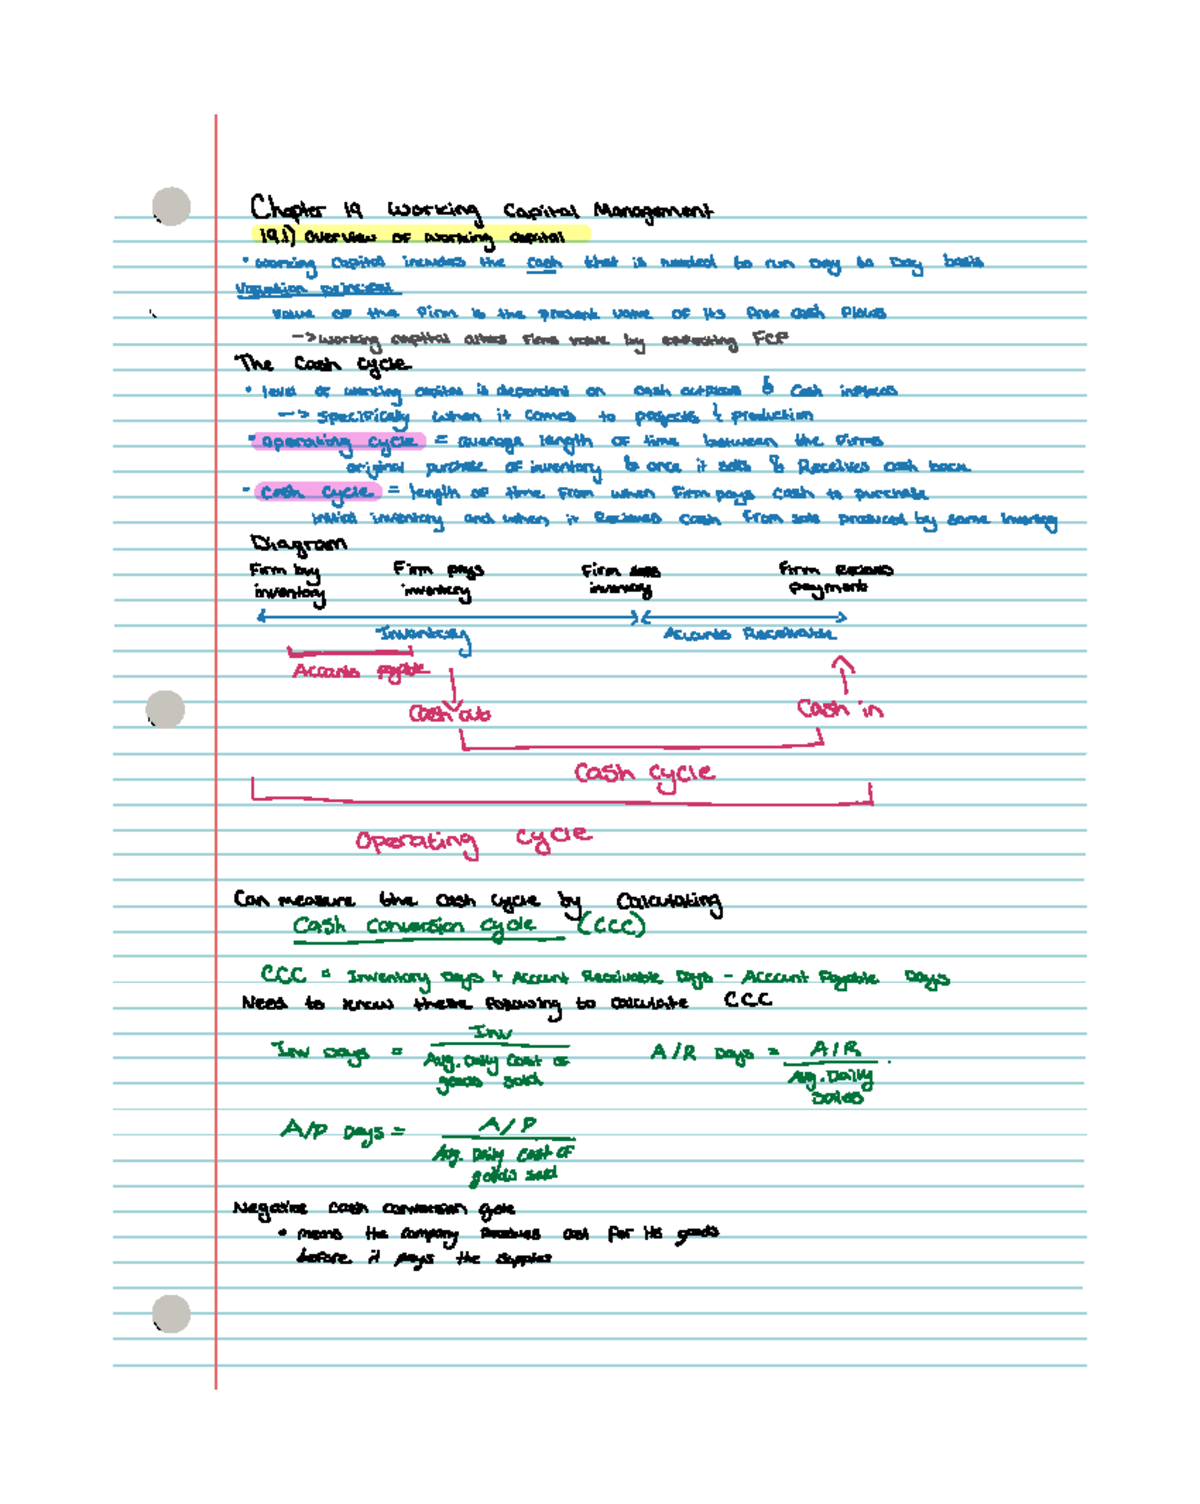 Chapter 19 Working Capital Management
19.1) Overview of working capital
• Working Capital includes the cash that is needed to run Day to Day basis
Valuation principal
Value of the firm is the present value of its free cash flows
-> working capital alters firms value by affecting FCF
The Cash Cycle
• level of working capital is dependent on cash outflows & cash inflows
--> Specifically when it comes to projects & production
• Operating cycle = average length of time between the firms
original purchase of inventory & once it sells & Receives cash back
• Cash Cycle = length of time from when firm pays cash to purchase
initial inventory and when it Recieves cash from sale produced by same inventory
Diagram
Firm buy inventory
Firm pays inventory
Firm sells inventory
Firm Recieves payment
Inventory
Accounts Receivable
Accounts payable
Cash out
Cash in
Cash cycle
Operating cycle
Can measure the cash cycle by Calculating
Cash Conversion cycle (CCC)
CCC = Inventory Days + Account Receivable Days - Account Payable Days
Need to know these following to calculate CCC
Inv Days = Inv
Avg. Daily Cost of
goods sold
A/R Days = A/R
Avg. Daily
Sales
A/P Days = A/P
Avg. Daily Cost of
goods sold
Negative cash conversion
• means the company for its goods
before it pays the supplier